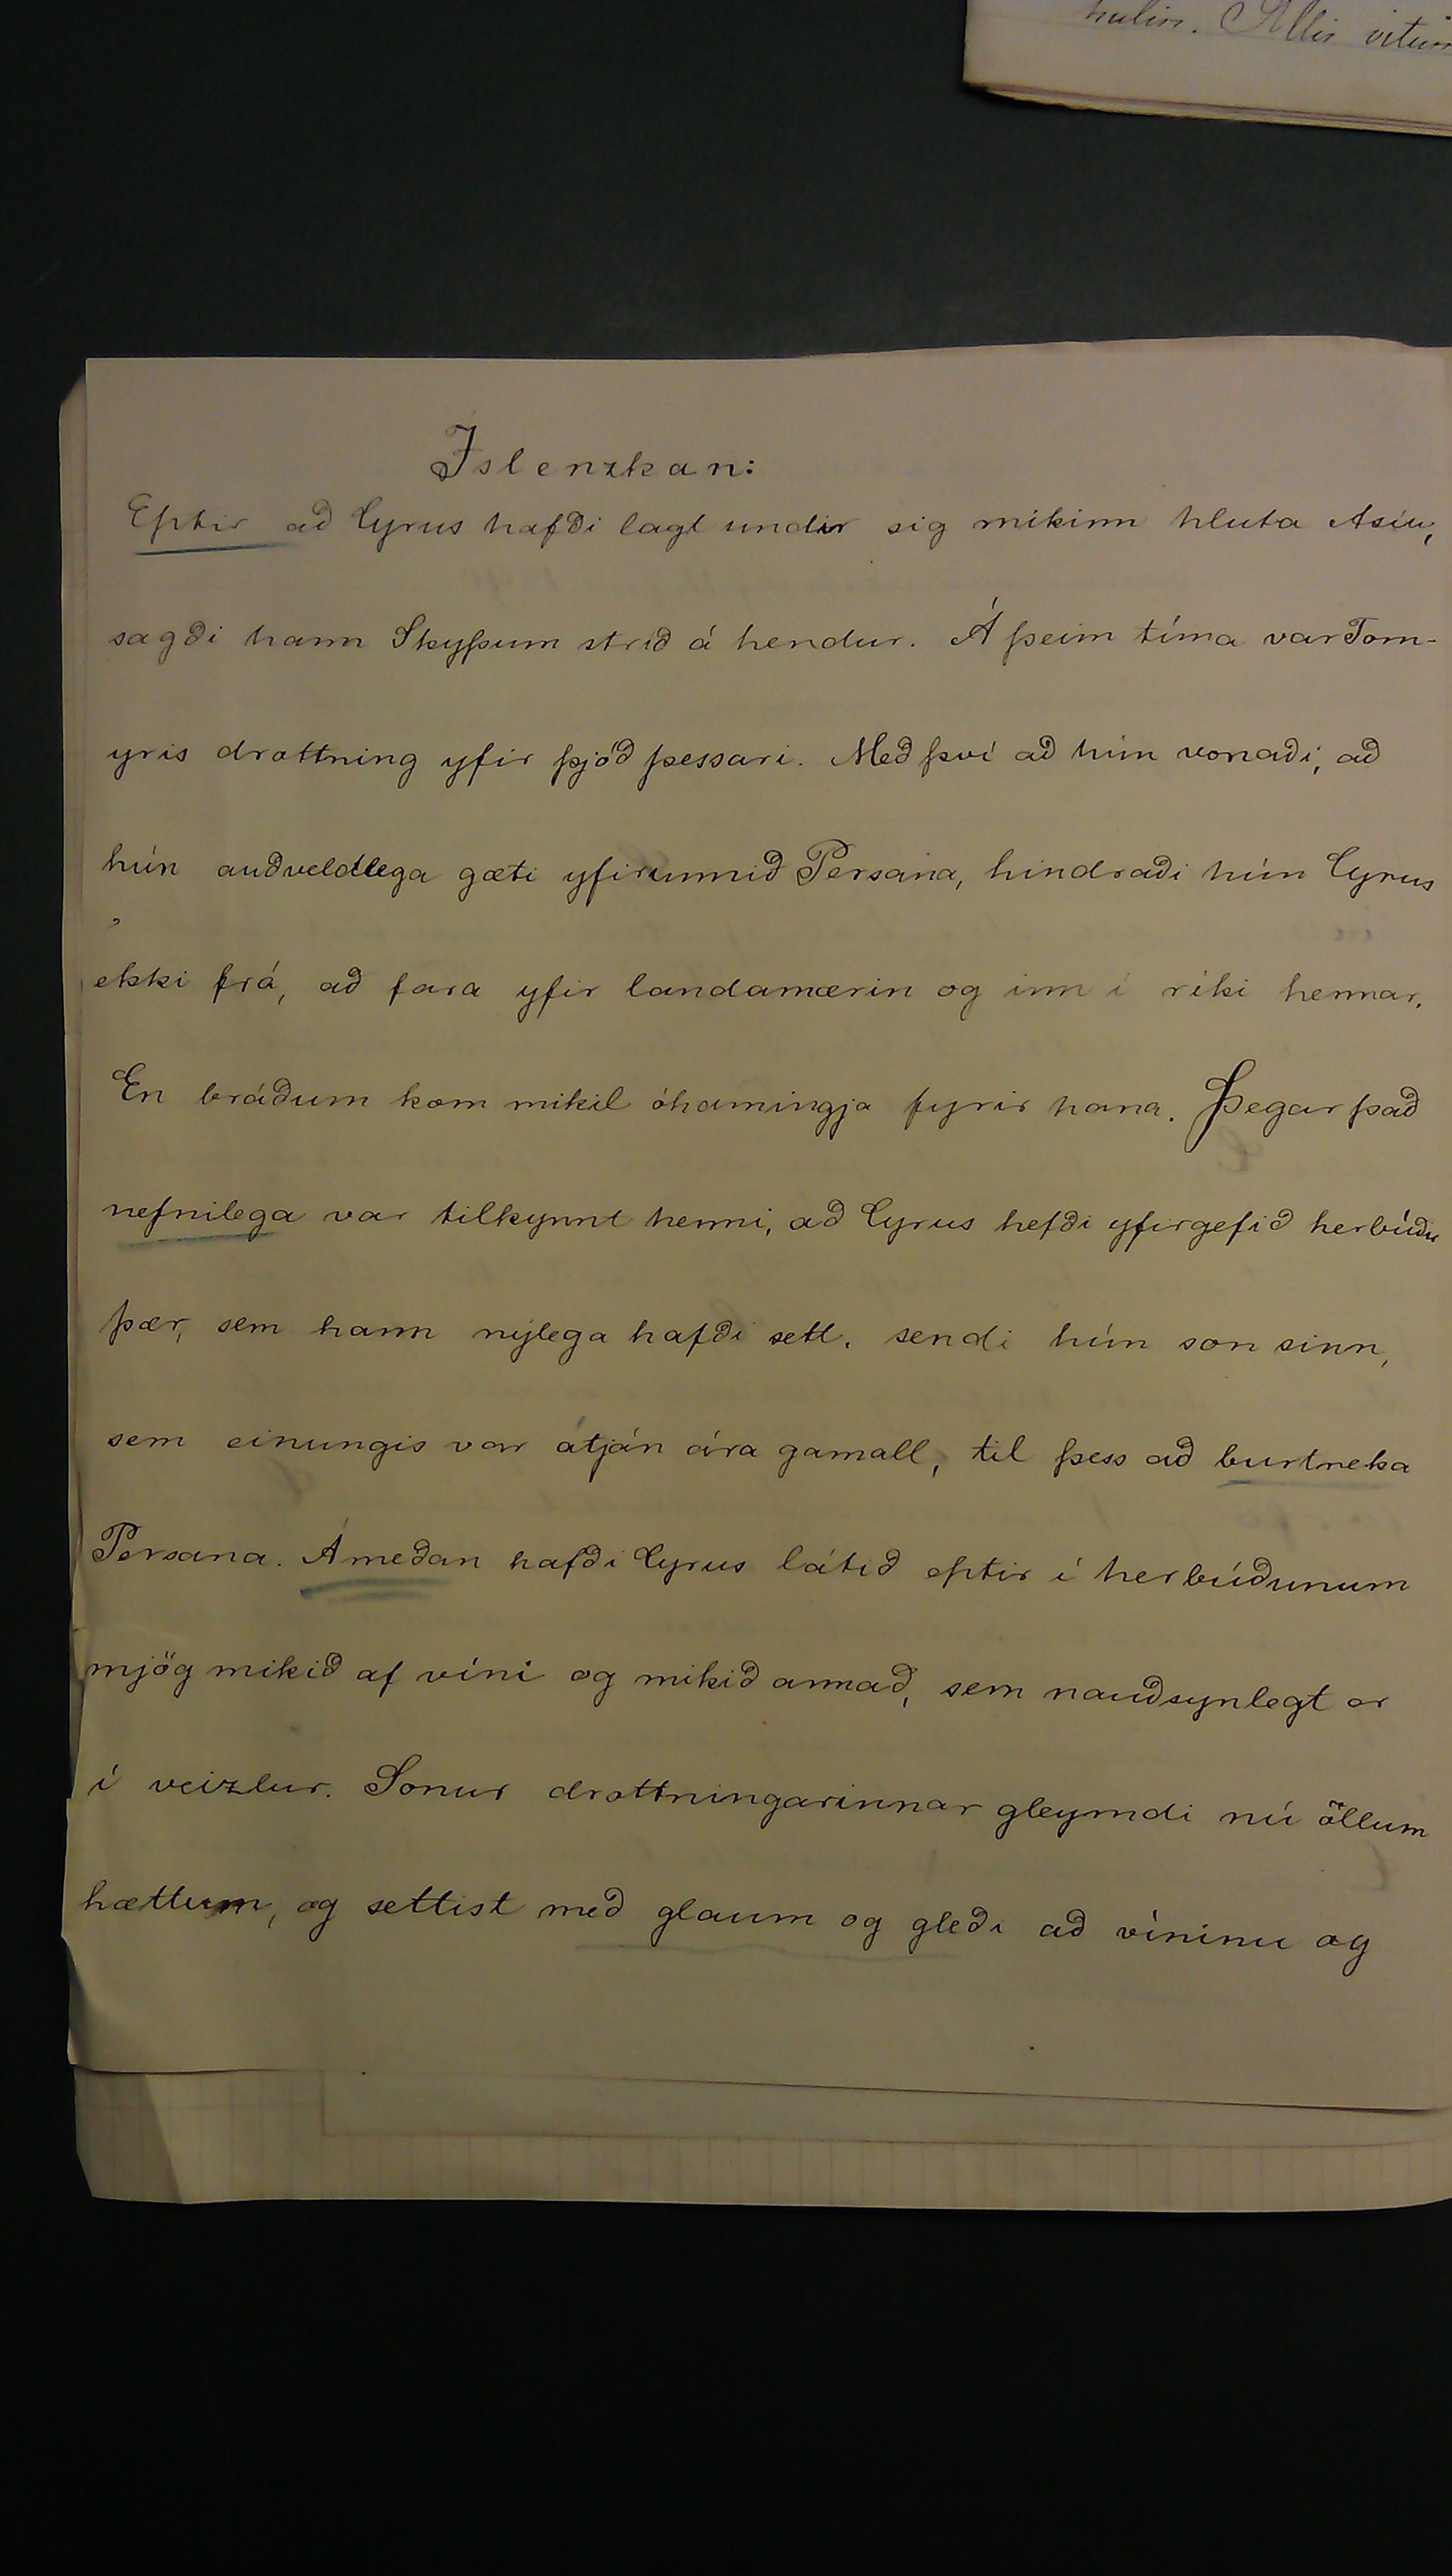 hulin. Allir vitum
Íslenzkan:
Eptir að Cyrus hafði lagt undir sig mikinn hluta Asíu,
sagði hann Skyþum stríð á hendur. Á þeim tíma var Tom-
yris drottning yfir þjóð þessari. Með því að hún vonaði, að
hún auðveldlega gæti yfirunnið Persana, hindraði hún Cyrus
ekki frá, að fara yfir landamærin og inn í ríki hennar.
En bráðum kom mikil óhamingja fyrir hana. Þegar það
nefnilega var tilkynnt henni, að Cyrus hefði yfirgefið herbúðir
þær, sem hann nýlega hafði sett, sendi hún son sinn,
sem einungis var átján ára gamall, til þess að burtreka
Persana. Ámeðan hafði Cyrus látið eptir í herbúðunum
mjög mikið af víni og mikið annað, sem nauðsynlegt er
í veizlur. Sonur drottningarinnar gleymdi nú öllum
hættum, og settist með glaum og gleði að víninu og